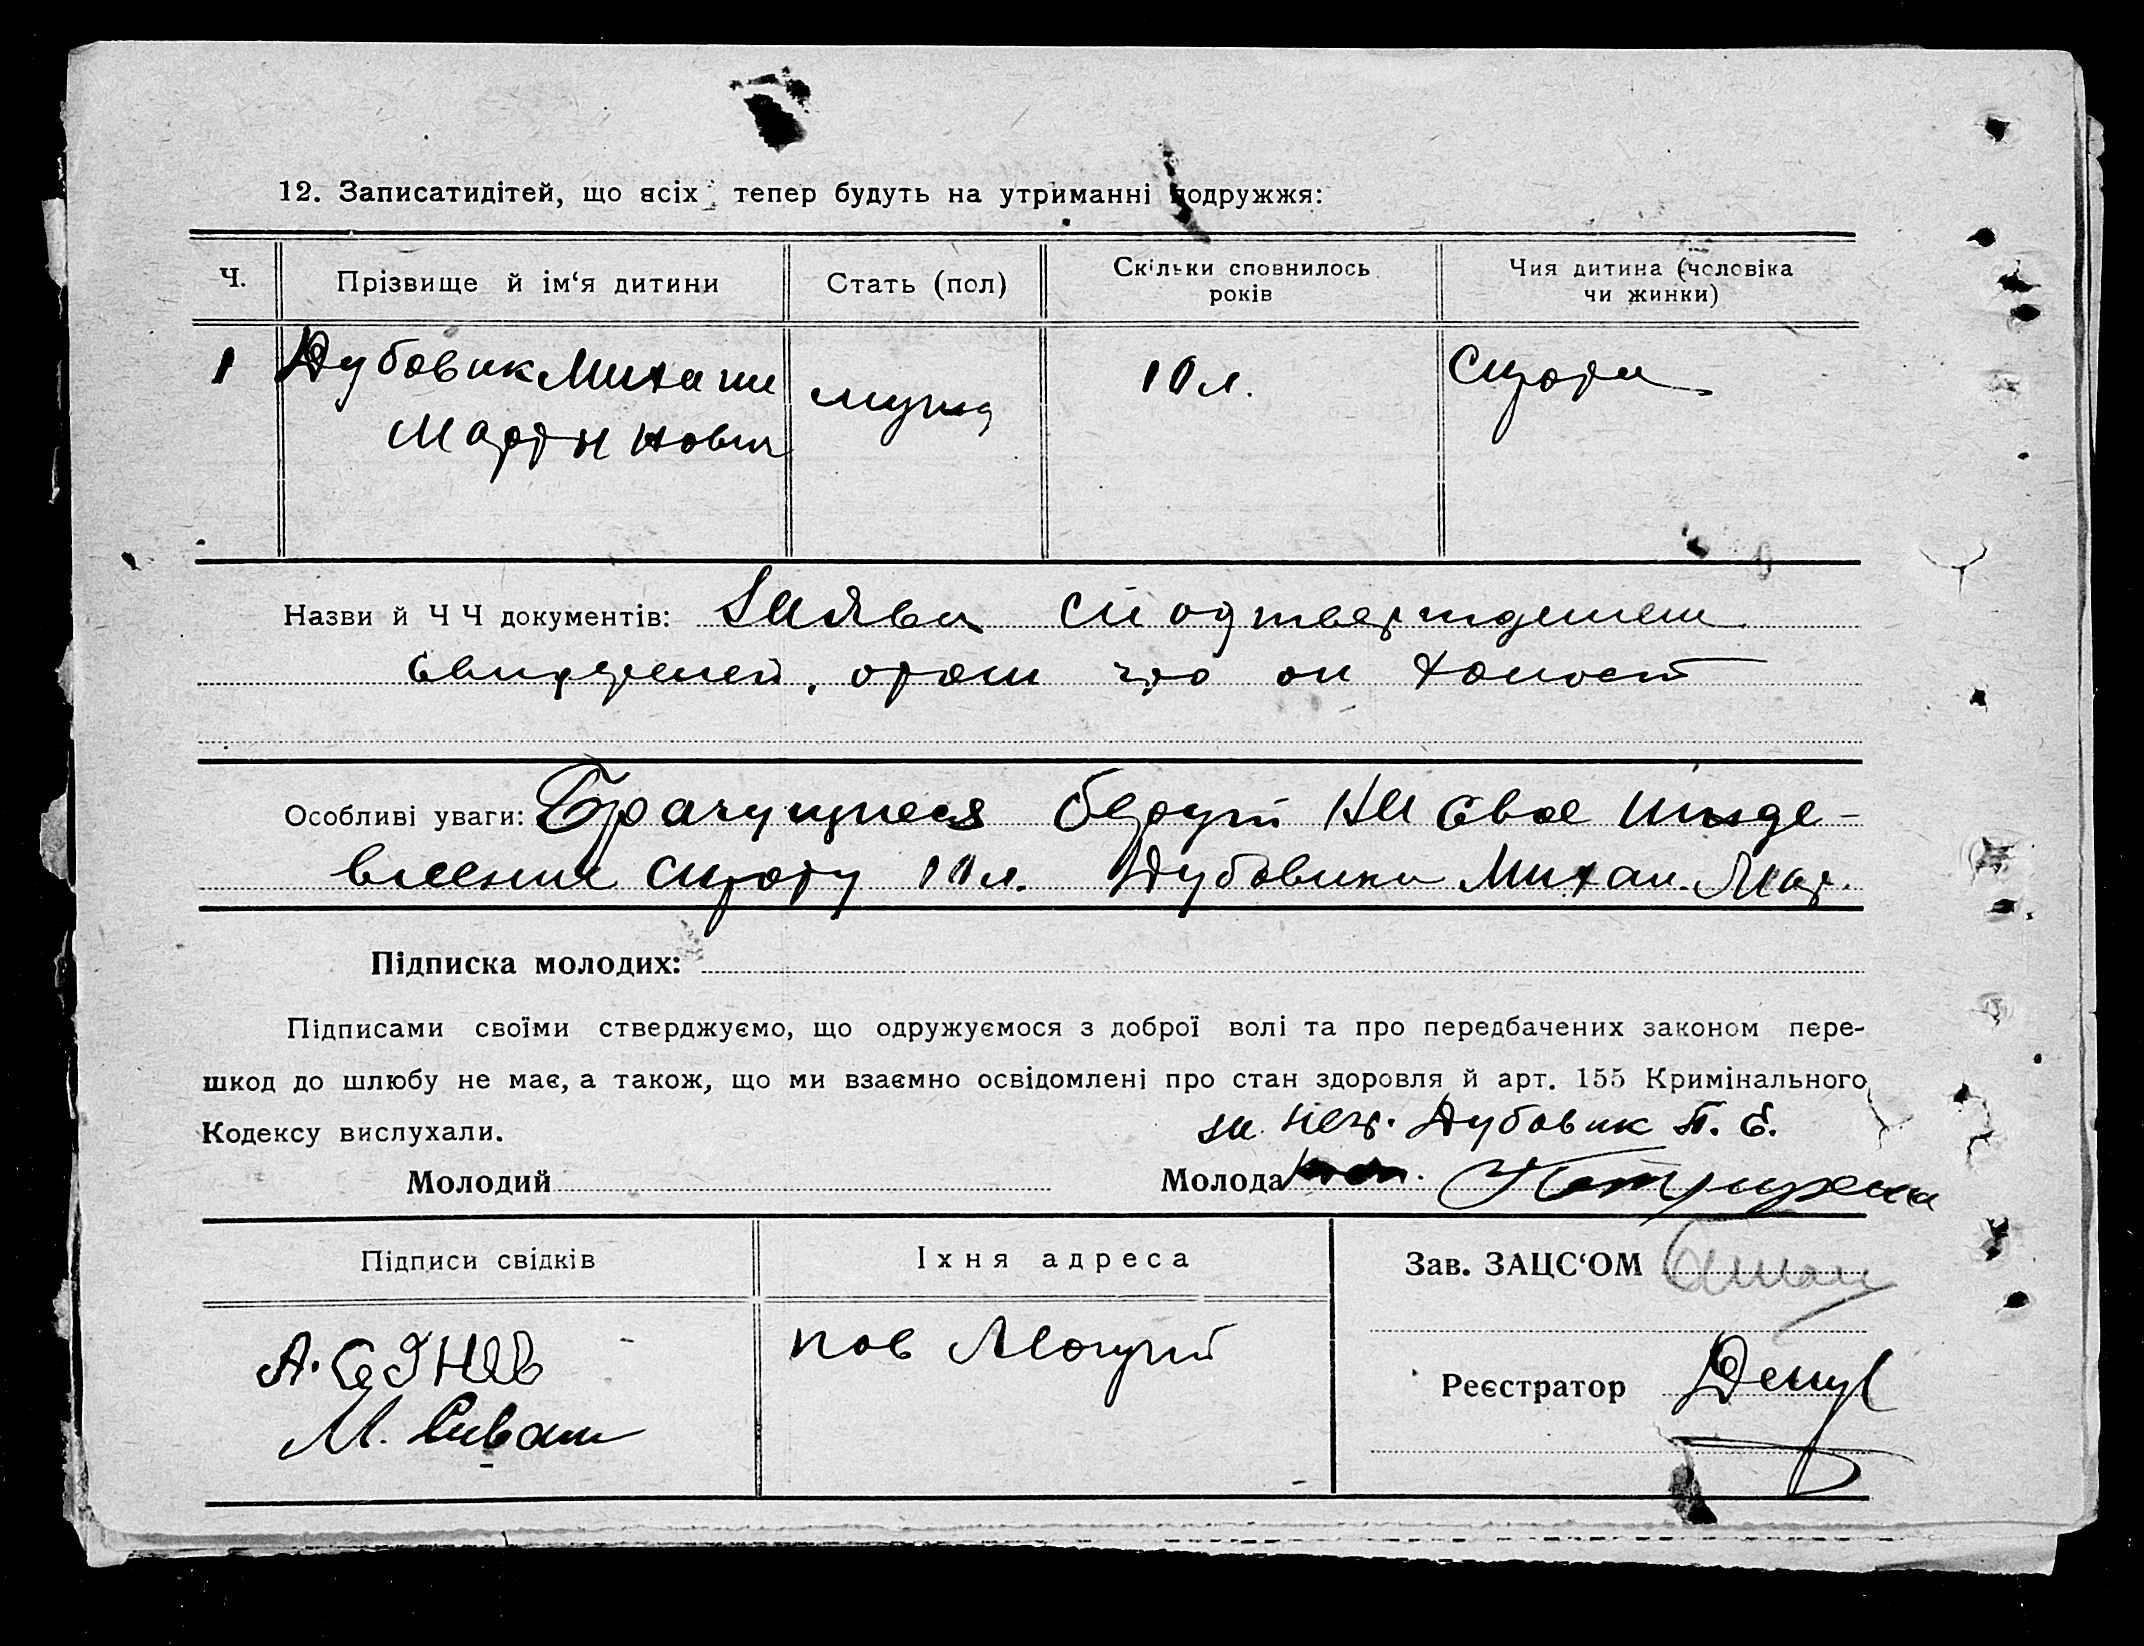 12. Записатидітей, що всіх тепер будуть на утриманні подружжя:
Ч. Прізвище й ім‘я дитини Стать (пол) Скільки сповнилось років Чия дитина (чоловіка чи жинки)
1 Дубовик Михаил мужч 10 л. Сирота
Мартинович
Назви й Ч Ч документів: Заява с подтверждением
свидетелей, о том что он холост
Особливі уваги: Брачущиеся берут на свое ижде-
вление сироту 10 л. Дубовика Михаи. Мар.
Підписка молодих:
Підписами своїми стверджуємо, що одружуємося з доброї волі та про передбачених законом пере-
шкод до шлюбу не має, а також, що ми взаємно освідомлені про стан здоровля й арт. 155 Кримінального
Кодексу вислухали.
за нег. Дубовик П. Е.
Молодий Молода
Підписи свідків Їхня адреса Зав. ЗАЦС‘ОМ
А. пов
М. Реєстратор